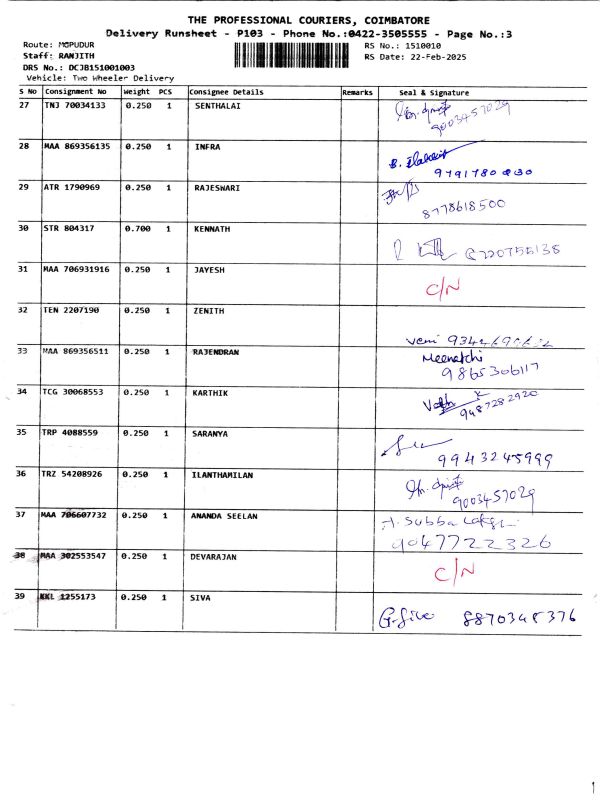 THE PROFESSIONAL COURIERS, COIMBATORE
Delivery Runsheet - P103 - Phone No.:0422-3505555 - Page No.:3
Route: MGPUDUR RS No.: 1510010
Staff: RANJITH RS Date: 22-Feb-2025
DRS No.: DCJB151001003
Vehicle: Two Wheeler Delivery
S No Consignment No Weight PCS Consignee Details Remarks Seal & Signature
27 TNJ 70034133 0.250 1 SENTHALAI
9003457029
28 MAA 869356135 0.250 1 INFRA
9791780830
29 ATR 1790969 0.250 1 RAJESWARI
8778618500
30 STR 804317 0.700 1 KENNATH
31 MAA 706931916 0.250 1 JAYESH
C/N
32 TEN 2207190 0.250 1 ZENITH
Veni
33 MAA 869356511 0.250 1 RAJENDRAN Meenatchi
9865306117
34 TCG 30068553 0.250 1 KARTHIK
9487282920
35 TRP 4088559 0.250 1 SARANYA
9943245999
36 TRZ 54208926 0.250 1 ILANTHAMILAN
9003457029
37 MAA 706607732 0.250 1 ANANDA SEELAN
9047722326
38 MAA 302553547 0.250 1 DEVARAJAN
C/N
39 KKL 1255173 0.250 1 SIVA
G. Siva 8870348376